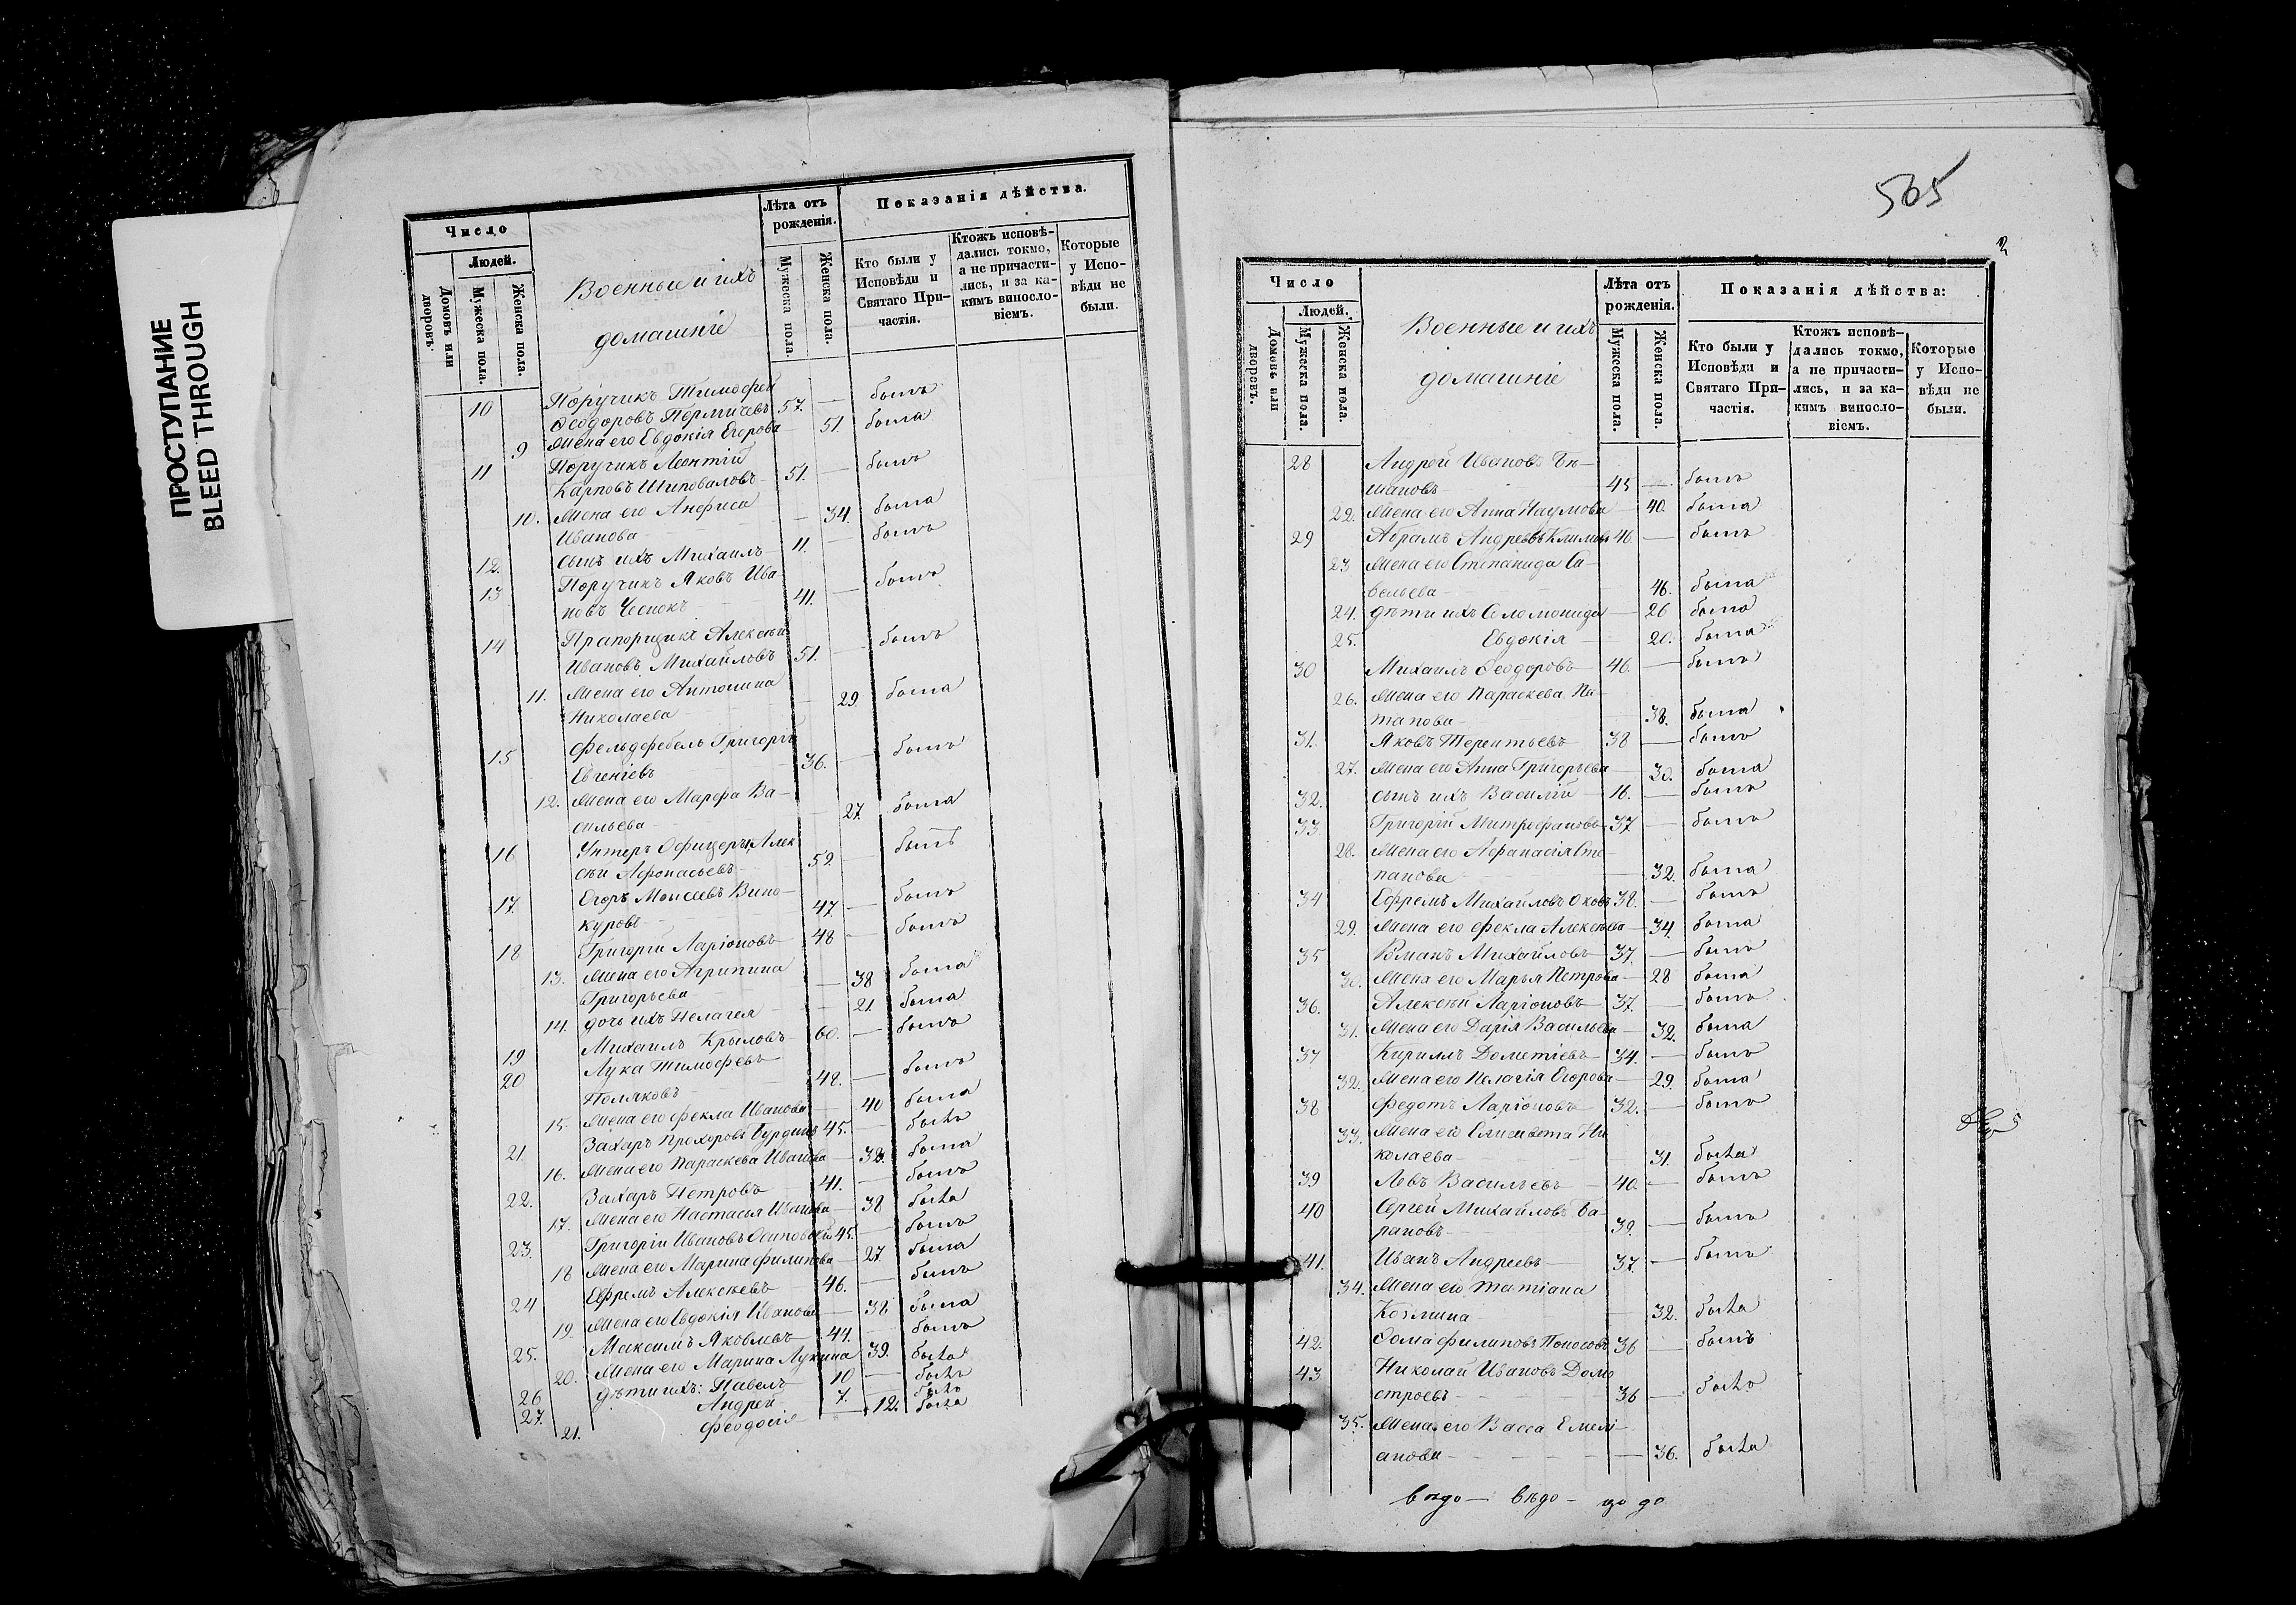 ПРОСТУПАНИЕ
BLEED THROUGH
Число
Людей.
Домовъ или дворовъ.
Мужеска пола.
Женска пола.
Военные и ихъ
домашніе
Лѣта отъ рожденія.
Мужеска пола.
Женска пола.
Показанія дѣйства.
Кто были у Исповѣди и Святаго Причастія.
Ктожъ исповѣдались токмо, а не причастились, и за какимъ винословіемъ.
Которые у Исповѣди не были.
10 Поручикъ Тимофей
Ѳеодоровъ Пермичевъ 57. — былъ
9 Жена его Евдокія Егорова 51. была
11 Поручикъ Леонтій
Карповъ Шиповаловъ 51. — былъ
10. Жена его Анфиса
Иванова — 34. была
12. сынъ ихъ Михаилъ 11. — былъ
13 Поручикъ Яковъ Ива
новъ Чеснокъ 41. — былъ
14 Прапорщикъ Алексѣй
Ивановъ Михайловъ 51. — былъ
11. Жена его Антонина
Николаева — 29. была
15 Фельдфебель Григорій
Евгеніевъ 36. — былъ
12. Жена его Марфа Ва-
сильева 27. была
16 Унтеръ Офицеръ Алек
сѣй Афонасьевъ 59. былъ
17. Егоръ Моисеевъ Вино-
куровъ 47. — былъ
18 Григорій Ларіоновъ 48 — былъ
13. Жена его Агрипина
Григорьева — 38 была
14. дочь ихъ Пелагея — 21. была
19 Михаилъ Крыловъ 60. — былъ
20 Лука Тимофѣевъ
Поляковъ 48. — былъ
15. Жена его Фекла Иванова 40 была
21. Захаръ Прохоровъ 45. — былъ
16. Жена его Параскева Иванова — 32. была
22. Захаръ Петровъ 41. — былъ
17. Жена его Настасья Иванова — 38 была
23. Григорій Ивановъ Осиповскій 45. — былъ
18 Жена его Марина Филипова — 27. была
24 Ефремъ Алексѣевъ 46. — былъ
19. Жена его Евдокія Иванова — 38. была
25. Максимъ Яковлевъ 44. — былъ
20. Жена его Марина Лукина 39. была
26 дѣти ихъ: Павелъ 10 — былъ
27. Андрей 7. — былъ
21. Феодосія — 12. была
505
2
Число
Людей.
Домовъ или дворовъ.
Мужеска пола.
Женска пола.
Военные и ихъ
домашніе
Лѣта отъ рожденія.
Мужеска пола.
Женска пола.
Показанія дѣйства:
Кто были у Исповѣди и Святаго Причастія.
Ктожъ исповѣдались токмо, а не причастились, и за какимъ винословіемъ.
Которые у Исповѣди не были.
28 Андрей Ивановъ Бѣ-
шановъ 45 — былъ
22. Жена его Анна Наумова 40. была
29 Абрамъ Андреевъ Климовъ 46. — былъ
23 Жена его Степанида Са-
вельева 46. была
24. дѣти ихъ Соломонида — 26 была
25. Евдокія 20. была
30 Михаилъ Ѳеодоровъ 46. — былъ
26. Жена его Параскева По-
тапова 38. была
31. Яковъ Терентьевъ 38 — былъ
27. Жена его Анна Григорьева — 30. была
32. сынъ ихъ Василій 16. — былъ
33. Григорій Митрофановъ 37. — былъ
28. Жена его Афанасія Сте-
панова — 32. была
34 Ефремъ Михайловъ Оковъ 38. — былъ
29. Жена его Фекла Алексѣева — 34. была
35 Романъ Михайловъ 37. — былъ
30. Жена его Марья Петрова — 28 была
36. Алексѣй Ларіоновъ 37. — былъ
31. Жена его Дарія Васильева — 32. была
37 Кирилъ Дометіевъ 34. — былъ
32. Жена его Пелагія Егорова — 29. была
38 Федотъ Ларіоновъ 32. — былъ
33. Жена его Елисавета Ни
колаева 31. была
39 Левъ Васильевъ 40. — былъ
40 Сергей Михайловъ Ба-
рановъ 39. — былъ
41. Иванъ Андреевъ 37. — былъ
34. Жена его Татіана
Козмина — 32. была
42. Ѳома Филиповъ Поносовъ 36 — былъ
43 Николай Ивановъ Домо
строевъ 36 — былъ
35. Жена его Васса Емелі-
анова — 36. была